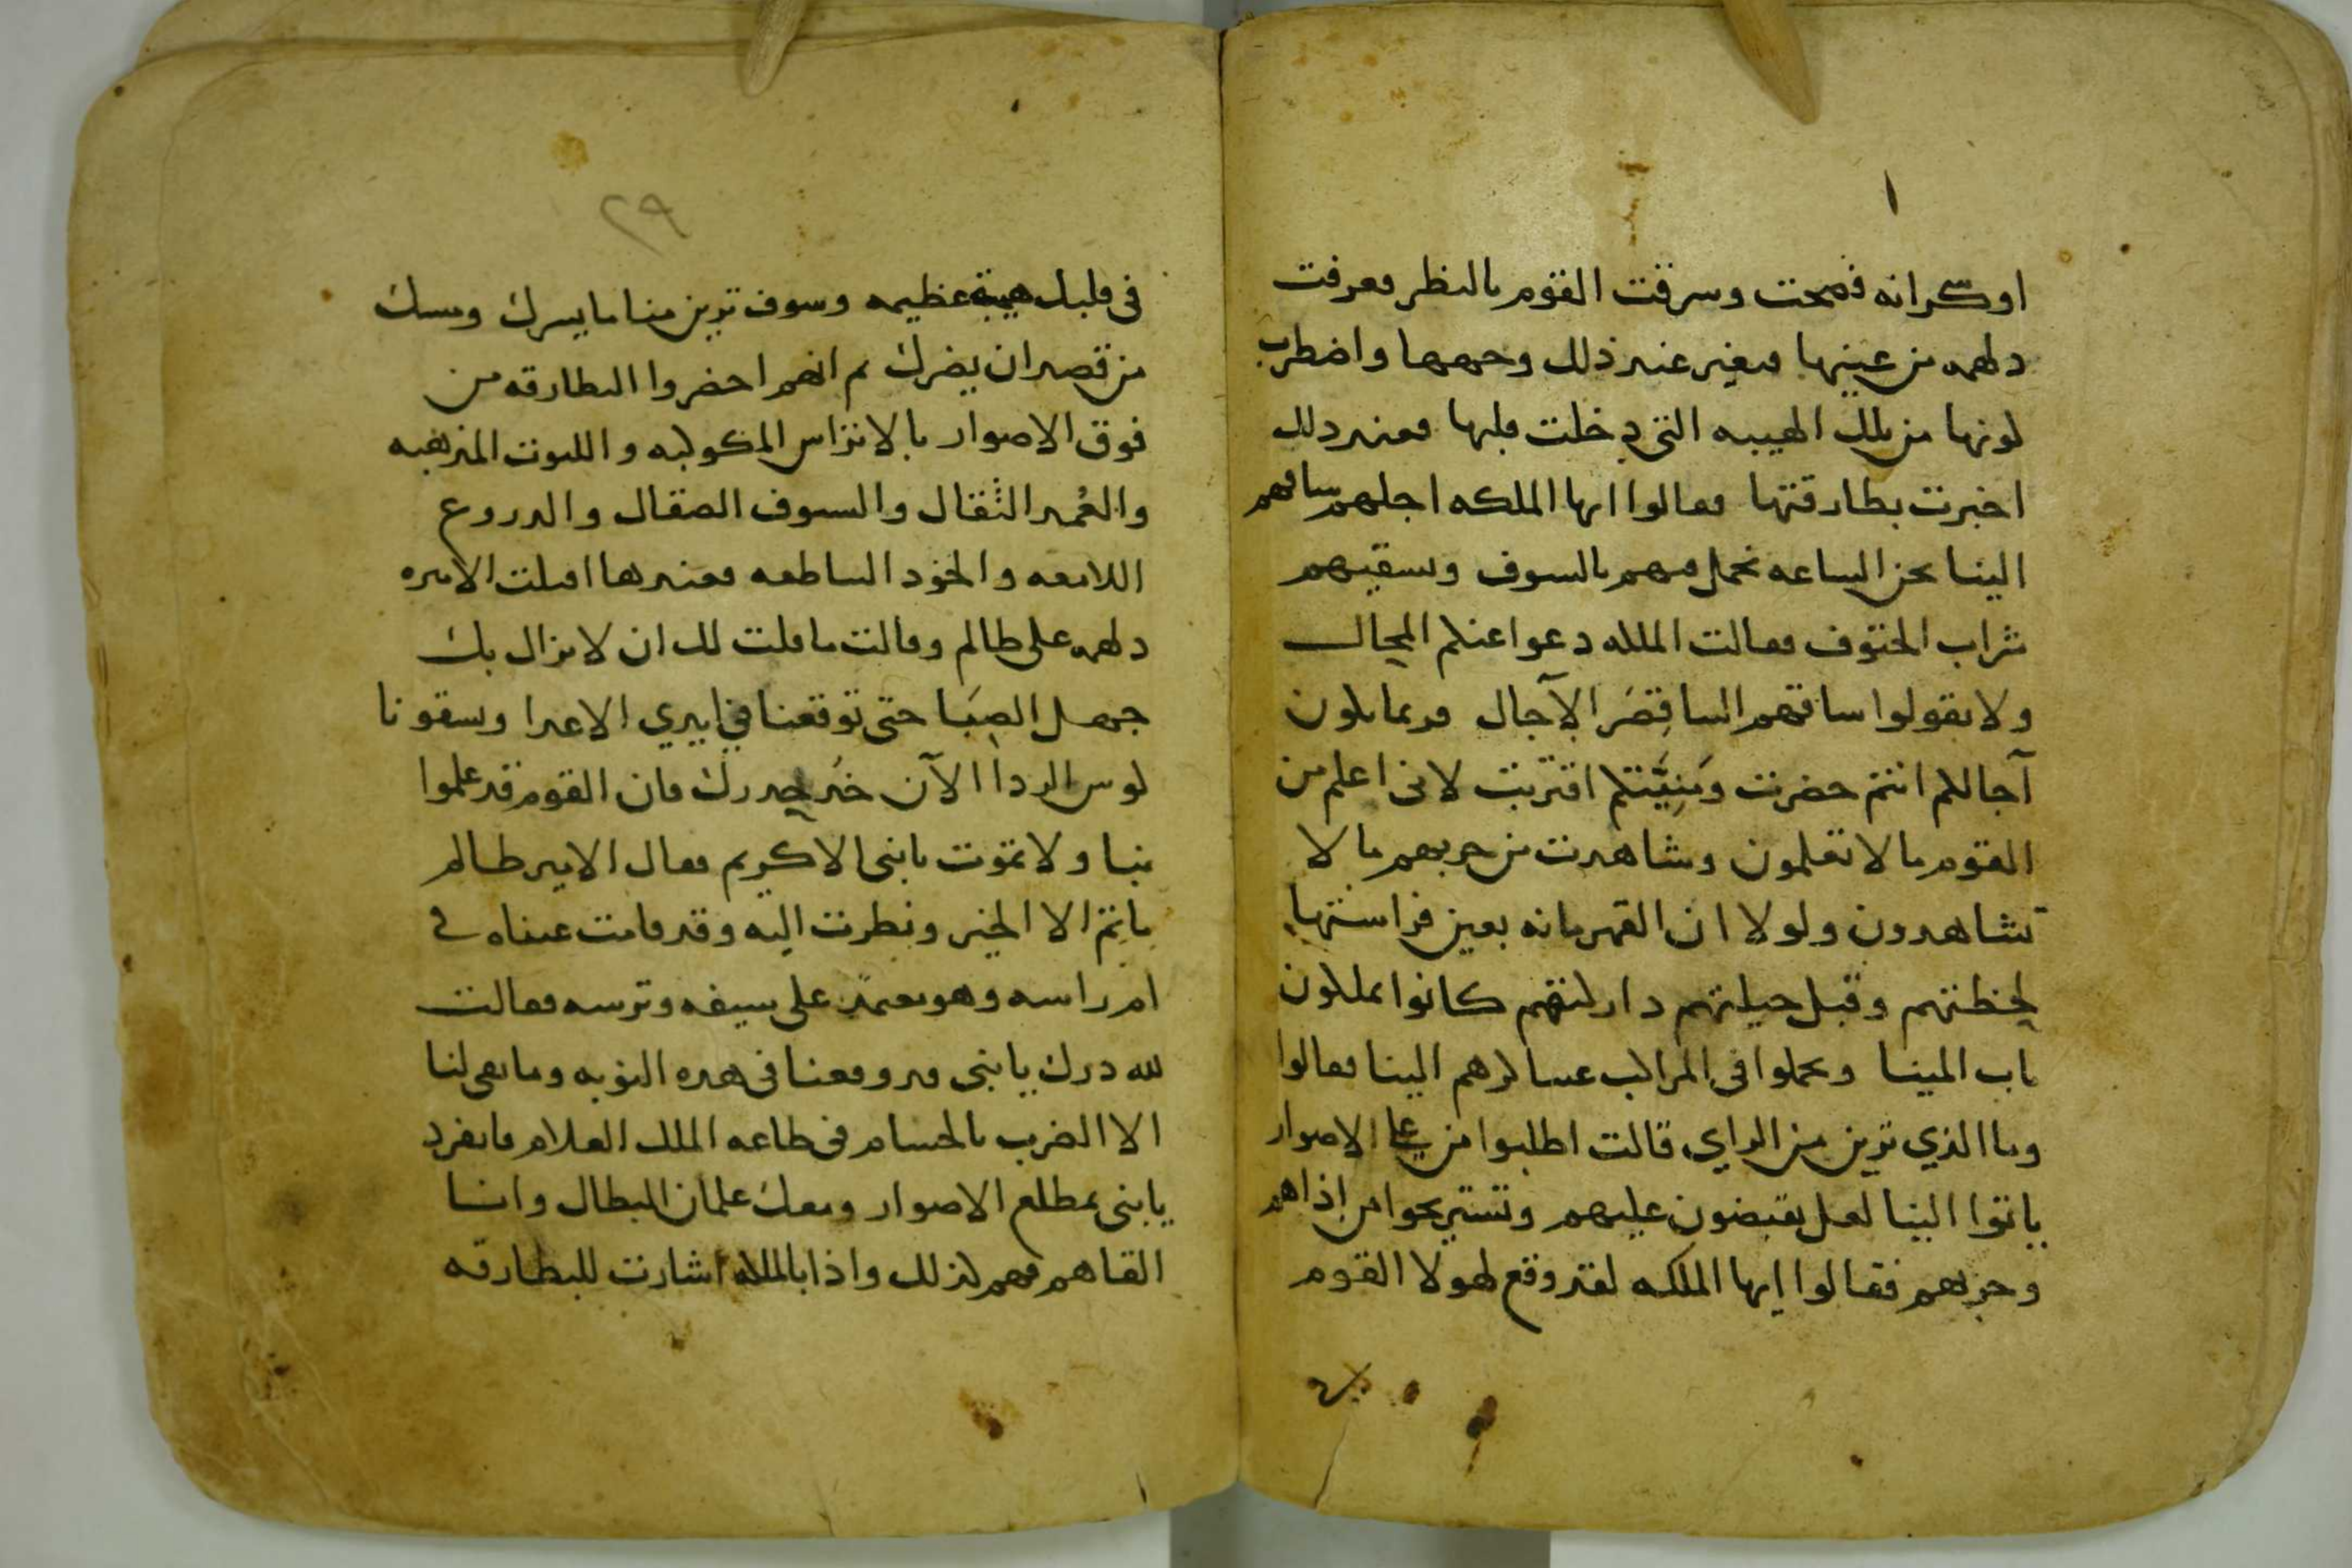 اوكرانه فمحت وسرقت القوم بالنظر فعرفت
دلهمه من عينها فتغير عند ذلك وجهها واضطرب
لونها من تلك الهيبه التي دخلت قلبها فعند ذلك
اخبرت بطارقتها فقالوا ايها الملكه اجلهم ساقهم
الينا نحن الساعه نحمل فيهم بالسيوف ونسقيهم
شراب الحتوف فقالت الملكه دعوا عنكم المحال
ولا تقولوا ساقهم الينا قِصَر الآجال فربما تكون
آجالكم انتم حضرت ومَنِيَّتكم اقتربت لانى اعلم من
القوم ما لا تعلمون وشاهدت من حربهم ما لا
تشاهدون ولولا ان القهرمانه بعين فراستها
لحظتهم وقبل حيلتهم داركتهم كانوا يملكون
باب المينا ويحملوا فى المراكب عساكرهم الينا فقالوا
وما الذي ترين من الراي قالت اطلبوا من على الاصوار
ياتوا الينا لعل يقبضون عليهم وتستريحوا من اذاهم
وحربهم فقالوا ايها الملكه لقد وقع لهولا القوم
٢٩
فى قلبك هيبة عظيمه وسوف ترين منا ما يسرك ونمسك
من قصد ان يضرك ثم انهم احضروا البطارقه من
فوق الاصوار بالاتراس المكوكبه واللتوت المذهبه
والعُمد الثقال والسيوف الصقال والدروع
اللامعه والخود الساطعه فعندها اقبلت الاميره
دلهمه على ظالم وقالت ما قلت لك ان لا يزال بك
جهل الصِبَا حتى توقعنا في ايدي الاعدا ويسقونا
كوس الردا الآن خذ حدرك فان القوم قد علموا
بنا ولا تموت يابنى الا كريم فقال الامير ظالم
ما تم الا الخير ونظرت اليه وقد قامت عيناه في
ام راسه وهو معتمد على سيفه وترسه فقالت
لله درك يا بنى قد وقعنا فى هده النوبه وما بقى لنا
الا الضرب بالحسام فى طاعه الملك العلام فانفرد
يا بنى بمطلع الاصوار ومعك غلمان البطال وانا
القاهم فهم لذلك واذا بالملكه اشارت للبطارقه